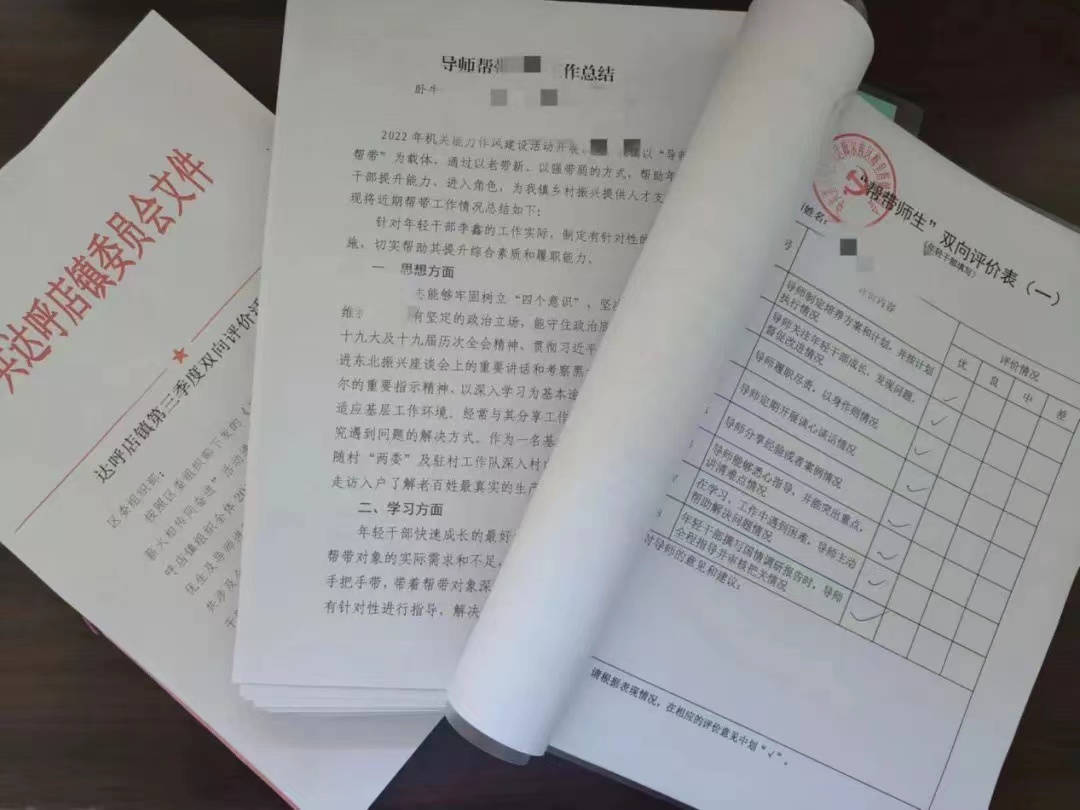 共达呼店镇委员会文件
达呼店镇第三季度双向评价
区委组织部:
按照区委组织部下发的
薪火相传同奋进”活动
呼店镇组织全体20
优生及导师
共涉及
导师帮 作总结
2022年机关能力作风建设活动开展 以“导
帮带”为载体,通过以老带新、以强带弱的方式,帮助年
干部提升能力、进入角色,为我镇乡村振兴提供人才支
现将近期帮带工作情况总结如下:
针对年轻干部李鑫的工作实际,制定有针对性的
地、切实帮助其提升综合素质和履职能力。
一 思想方面
能够牢固树立“四个意识”,坚
维 有坚定的政治立场,能守住政治
十九大及十九届历次全会精神、贯彻习近平
进东北振兴座谈会上的重要讲话和考察黑
尔的重要指示精神,以深入学习为基本
适应基层工作环境。经常与其分享工作
究遇到问题的解决方式。作为一名基
随村“两委”及驻村工作队深入村
走访入户了解老百姓最真实的生产
二、学习方面
年轻干部快速成长的最好
帮带对象的实际需求和不足,
手把手带,带着帮带对象深
有针对性进行指导,解决
“帮带师生”双向评价表(一)
(年轻干部填写)
姓名:
评价内容
评价情况
优 良 中 差
导师制定培养方案和计划,并按计划
执行情况
导师关注年轻干部成长,发现问题、
督促改进情况
导师履职尽责,以身作则情况
导师定期开展谈心谈话情况
导师分享经验或者案例情况
导师能够悉心指导,并能突出重点,
讲清难点情况
在学习、工作中遇到困难,导师主动
帮助解决问题情况
年轻干部撰写国情调研报告时,导师
全程指导并审核把关情况
对导师的意见和建议:
请根据表现情况,在相应的评价意见中划“√”。